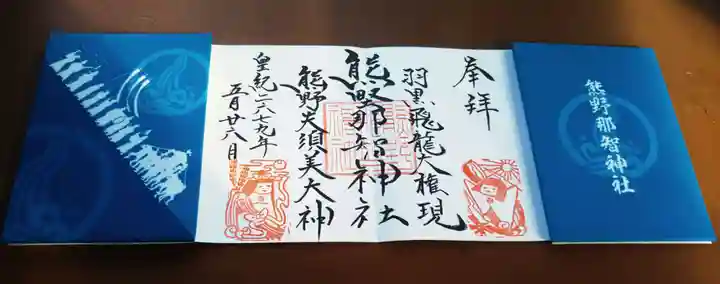 奉拝
羽黒飛龍大権現
熊野那智神社
熊野夫須美大神
皇紀二六七九年
五月廿六日
熊野那智神社